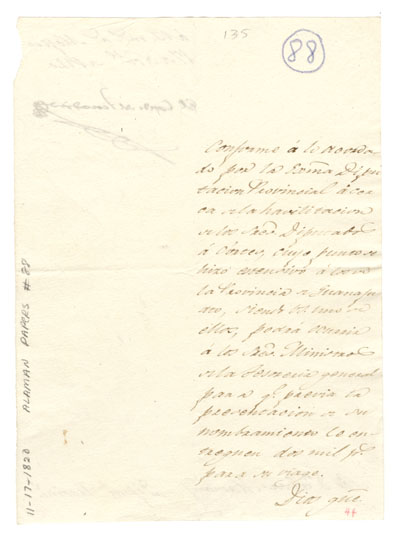 135
88
Conforme á lo acorda-
do por la Exma Dipu-
tacion Provincial acer-
ca de la havilitacion
de los Sres Diputados
á Cortes, cuyo punto se
hizo estensivo á toda
la Provincia de Guanajua-
to, siendo V. uno de
ellos, podrá ocurrir
á los Sres Ministros
de la Tesoreria general
para q. previa la
presentacion de su
nombramiento le en-
treguen dos mil ps.
para su viage.
Dios gue
ALAMAN PAPERS # 88
11-17-1820